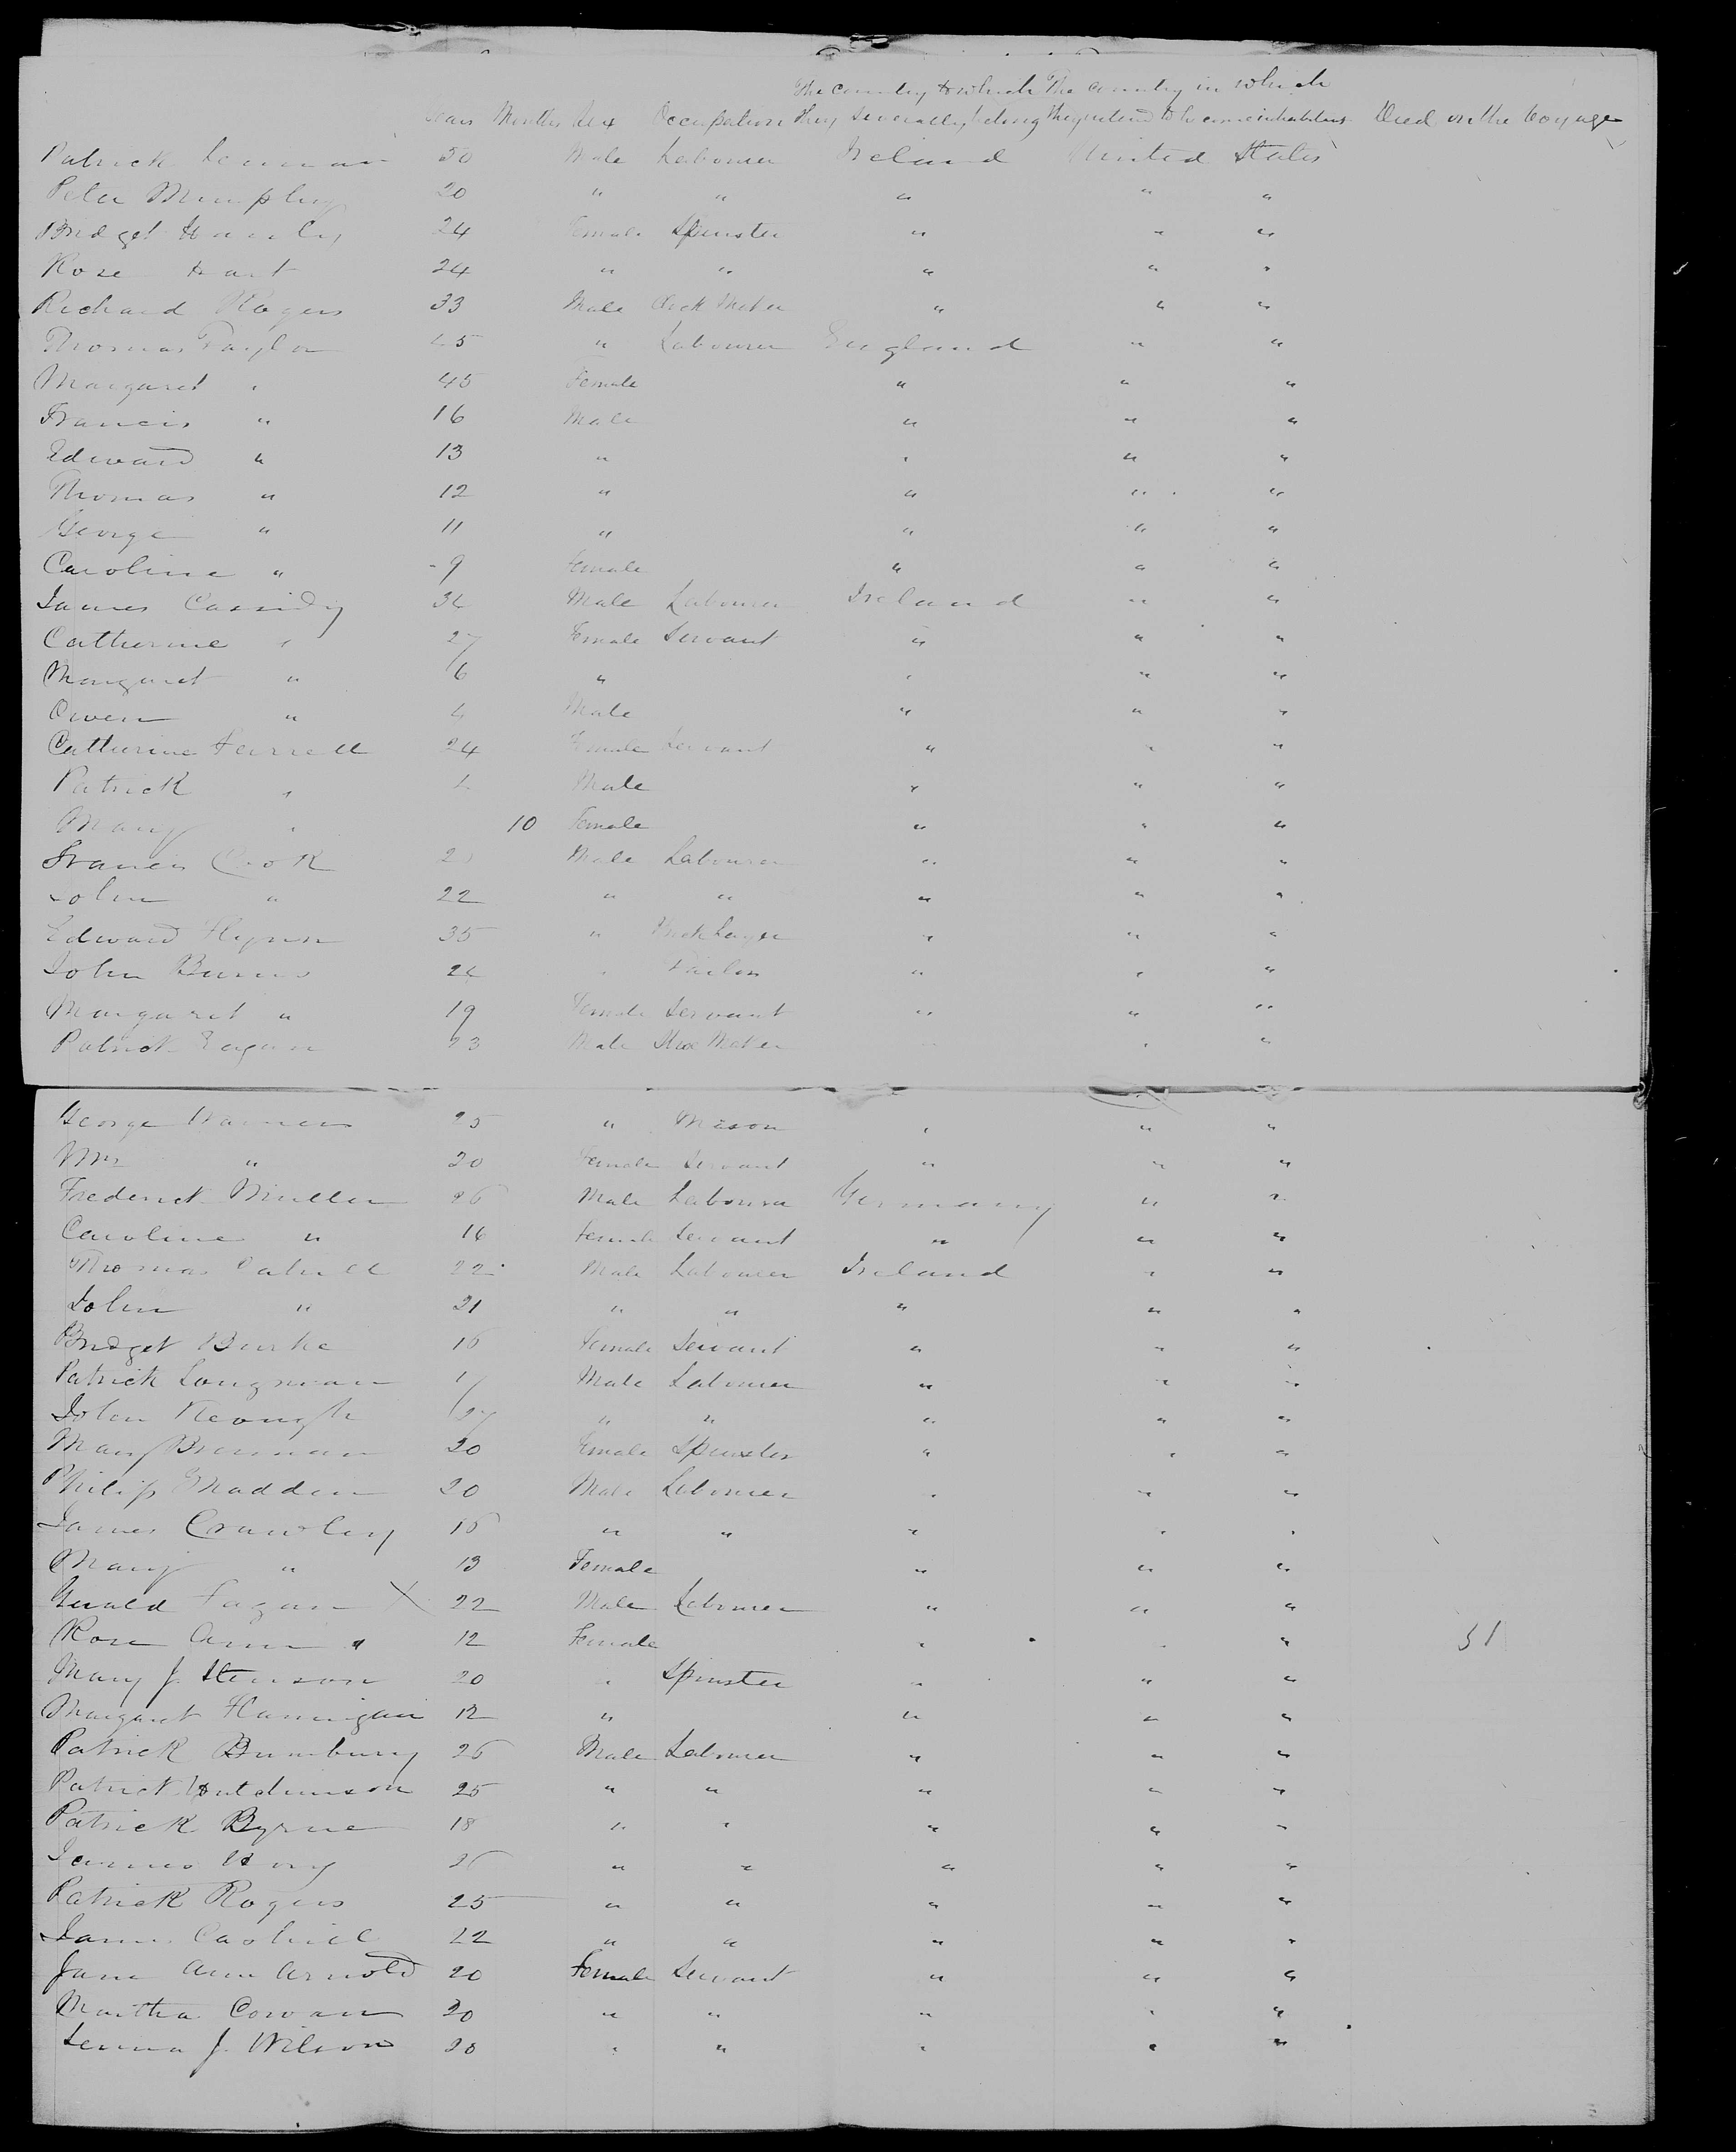 The country to which The country in which
Years Months Sex Occupation they severally belong they intend to become inhabitants Died on the Voyage
Patrick 50 Male Labourer Ireland United States
Peter Murphy 20 " " " " "
Bridget 24 Female Spinster " " "
Rose Hart 24 " " " " "
Richard Rogers 33 Male Clock Maker " " "
Thomas Taylor 45 " Labourer England " "
Margaret " 45 Female " " "
Francis " 16 Male " " "
Edward " 13 " " " "
Thomas " 12 " " " "
George " 11 " " " "
Caroline " 9 Female " " "
James Cassidy Male Labourer Ireland " "
Catherine " 27 Female Servant " " "
Margaret " 6 " " " "
Owen " 4 Male " " "
Catherine Farrell 24 Female Servant " " "
Patrick " 4 Male " " "
Mary " 10 Female " " "
Francis Cook Male Labourer " " "
John " 22 " " " " "
Edward Flynn 35 " Brick Layer " " "
John Burns 24 " Tailor " " "
Margaret " 19 Female Servant " " "
Patrick 23 Male Shoe Maker " " "
George 25 " Mason " " "
Mrs " 20 Female Servant " " "
Frederick Muller 26 Male Labourer Germany " "
Caroline " 16 Female Servant " " "
Thomas 22 Male Labourer Ireland " "
John " 21 " " " " "
Bridget Burke 16 Female Servant " " "
Patrick Longman 17 Male Labourer " " "
John Keough 27 " " " " "
Mary Brennan 20 Female Spinster " " "
Philip Madden 20 Male Labourer " " "
James Crawley 16 " " " " "
Mary " 13 Female " " "
Gerald Fagan X 22 Male Labourer " " "
Rose Ann " 12 Female " " " 51
Mary J. Stenson 20 " Spinster " " "
Margaret Hannigan 12 " " " "
Patrick Bumbury 26 Male Labourer " " "
Patrick Hutchinson 25 " " " " "
Patrick Byrne 18 " " " " "
James 26 " " " " "
Patrick Rogers 25 " " " " "
James 22 " " " " "
Jane Ann Arnold 20 Female Servant " " "
Martha Cowan 20 " " " " "
J. Wilson 20 " " " " "